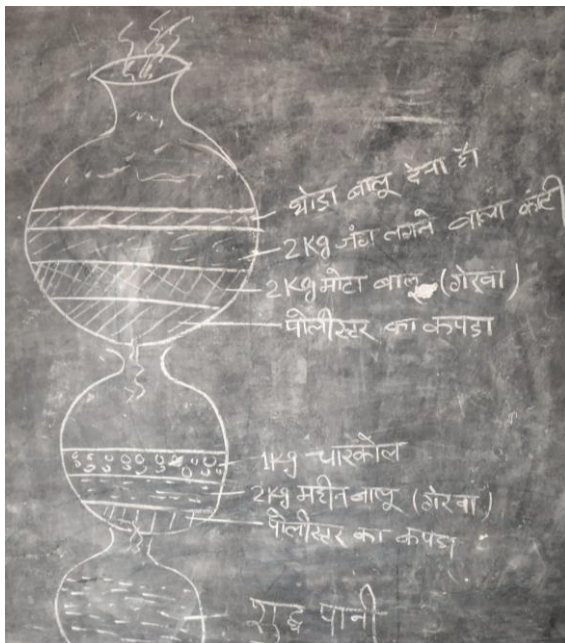 थोडा बालू देना है।
2Kg जंग लगने वाला कांटी
2Kg मोटा बालू (गेरवा)
पोलीस्टर का कपडा
1Kg चारकोल
2Kg महीन बालू (गेरवा)
पोलीस्टर का कपडा
शुद्ध पानी